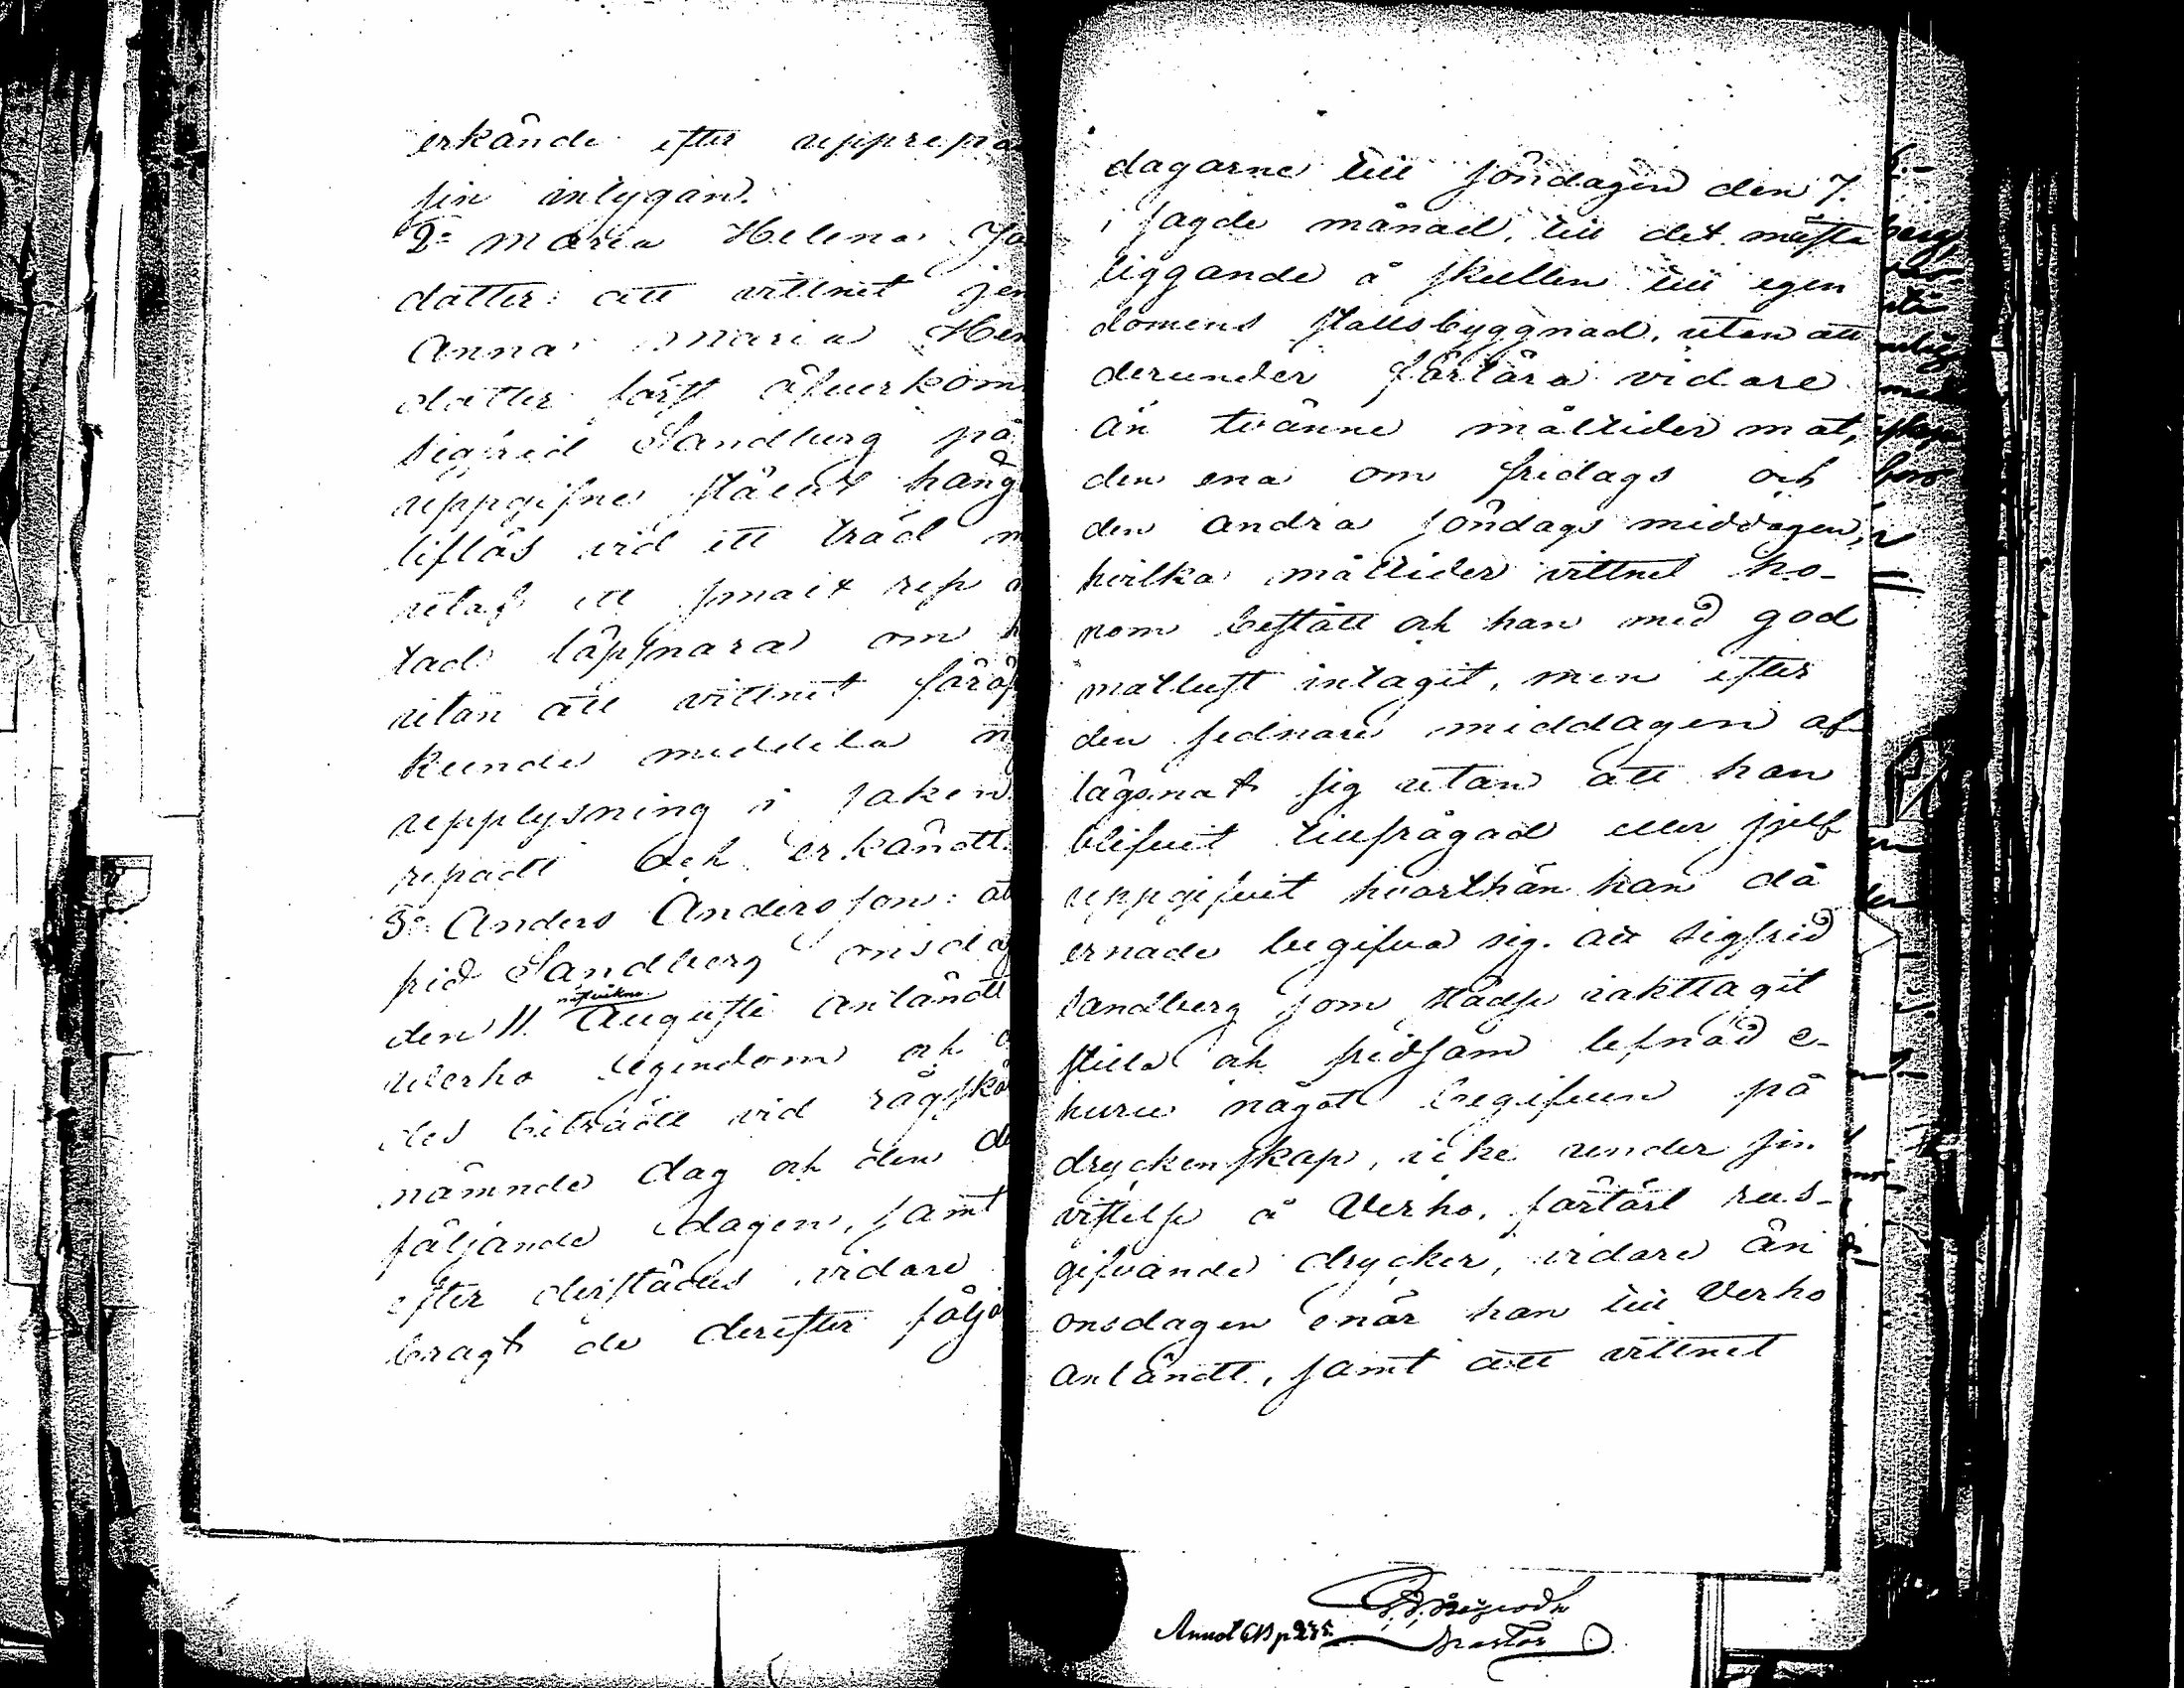 erkände efter upprepa
sin intygan.
2:o Maria Helena Jo
dotter: att vittnet jem
Anna Maria Hen
dotter först öfverkom
Sigfrid Sandberg på
uppgifne ställe häng
liflös vid ett träd m
utaf ett smalt rep
tad löpsnara om h
utan att vittnet föröf
kunde meddela n
upplysning i saken
repadt och erkändt.
3:o Anders Andersson: at
frid Sandberg onsdag
den 11. Augusti anländt
Verho egendom och
des biträdt vid rågskö
nämnde dag och den d
följande dagen, samt
efter derstädes vidare
bragt de derefter följa
dagarne till söndagen den 7.
i sagde månad, till det mesta
liggande å skullen till egen
domens stallsbyggnad, utan att
derunder förtära vidare
än tvänne måltider mat,
den ena om fredags och
den andra söndags middagen,
hvilka måltider vittnet ho-
nom bestått och han med god
matlust intagit, men efter
den sednare middagen af
lägsnat sig utan att han
blifvit tillfrågad eller sjelf
uppgifvit hvarthän han då
ernade begifva sig. Att Sigfrid
Sandberg som städse iakttagit
stilla och fridsam lefnad e-
huru något begifven på
dryckenskap, icke under sin
vistelse å Verho, förtärt rus-
gifvande drycker, vidare än
onsdagen enär han till Verho
anländt, samt att vittnet
Pastor